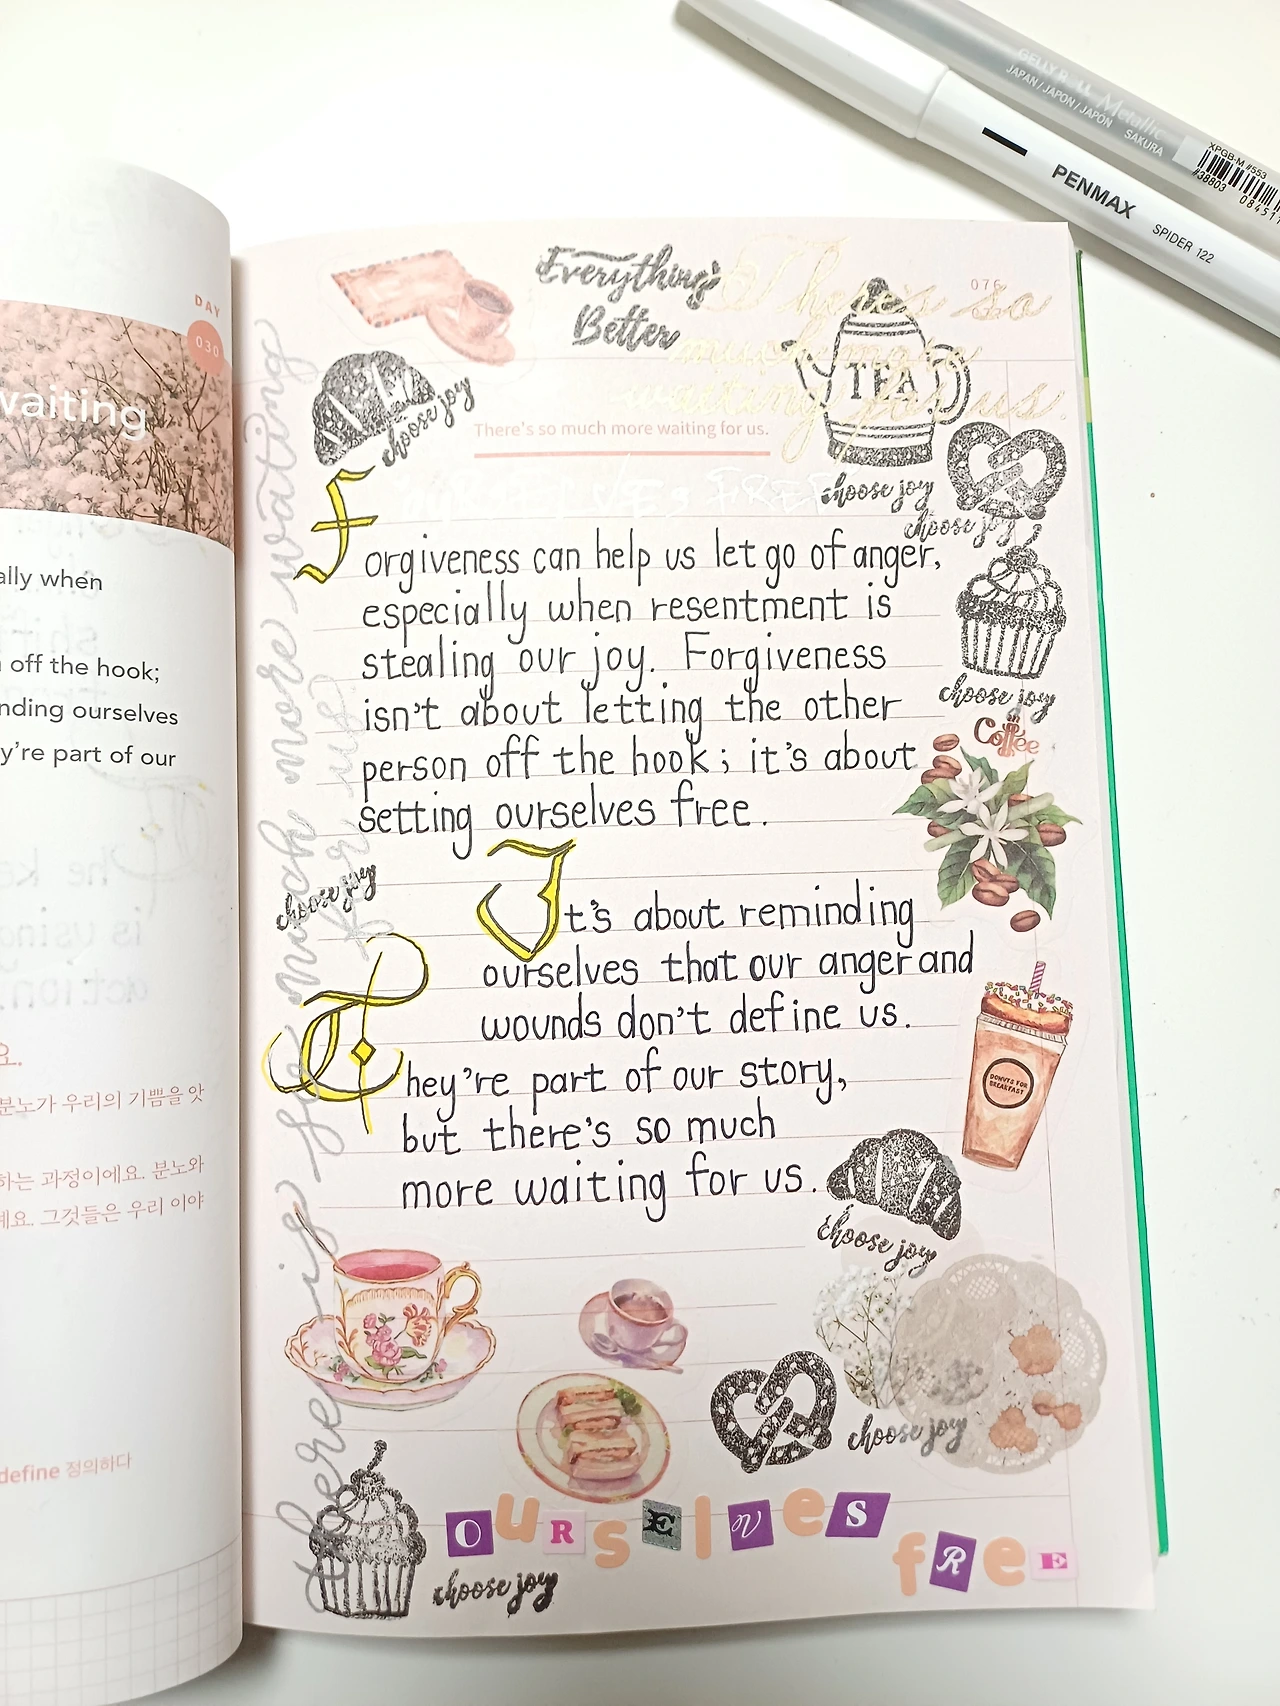 GELLY ROLL Metallic
JAPAN / JAPON / JAPÓN SAKURA
XPGB-M #553
#38803
PENMAX SPIDER 122
DAY
030
waiting
ally when
off the hook;
nding ourselves
y're part of our
요.
분노가 우리의 기쁨을 앗
하는 과정이에요. 분노와
예요. 그것들은 우리 이야
define 정의하다
076
Everything's
Better
There's so
much more
waiting for us.
TEA
choose joy
There's so much more waiting for us.
choose joy
choose joy
Forgiveness can help us let go of anger,
especially when resentment is
stealing our joy. Forgiveness
isn't about letting the other
person off the hook; it's about
setting ourselves free.
choose joy
Coffee
choose joy
It's about reminding
ourselves that our anger and
wounds don't define us.
They're part of our story,
but there's so much
more waiting for us.
DONUTS FOR
BREAKFAST
choose joy
choose joy
OURSELVES
FREE
choose joy
there is so much more waiting
for us